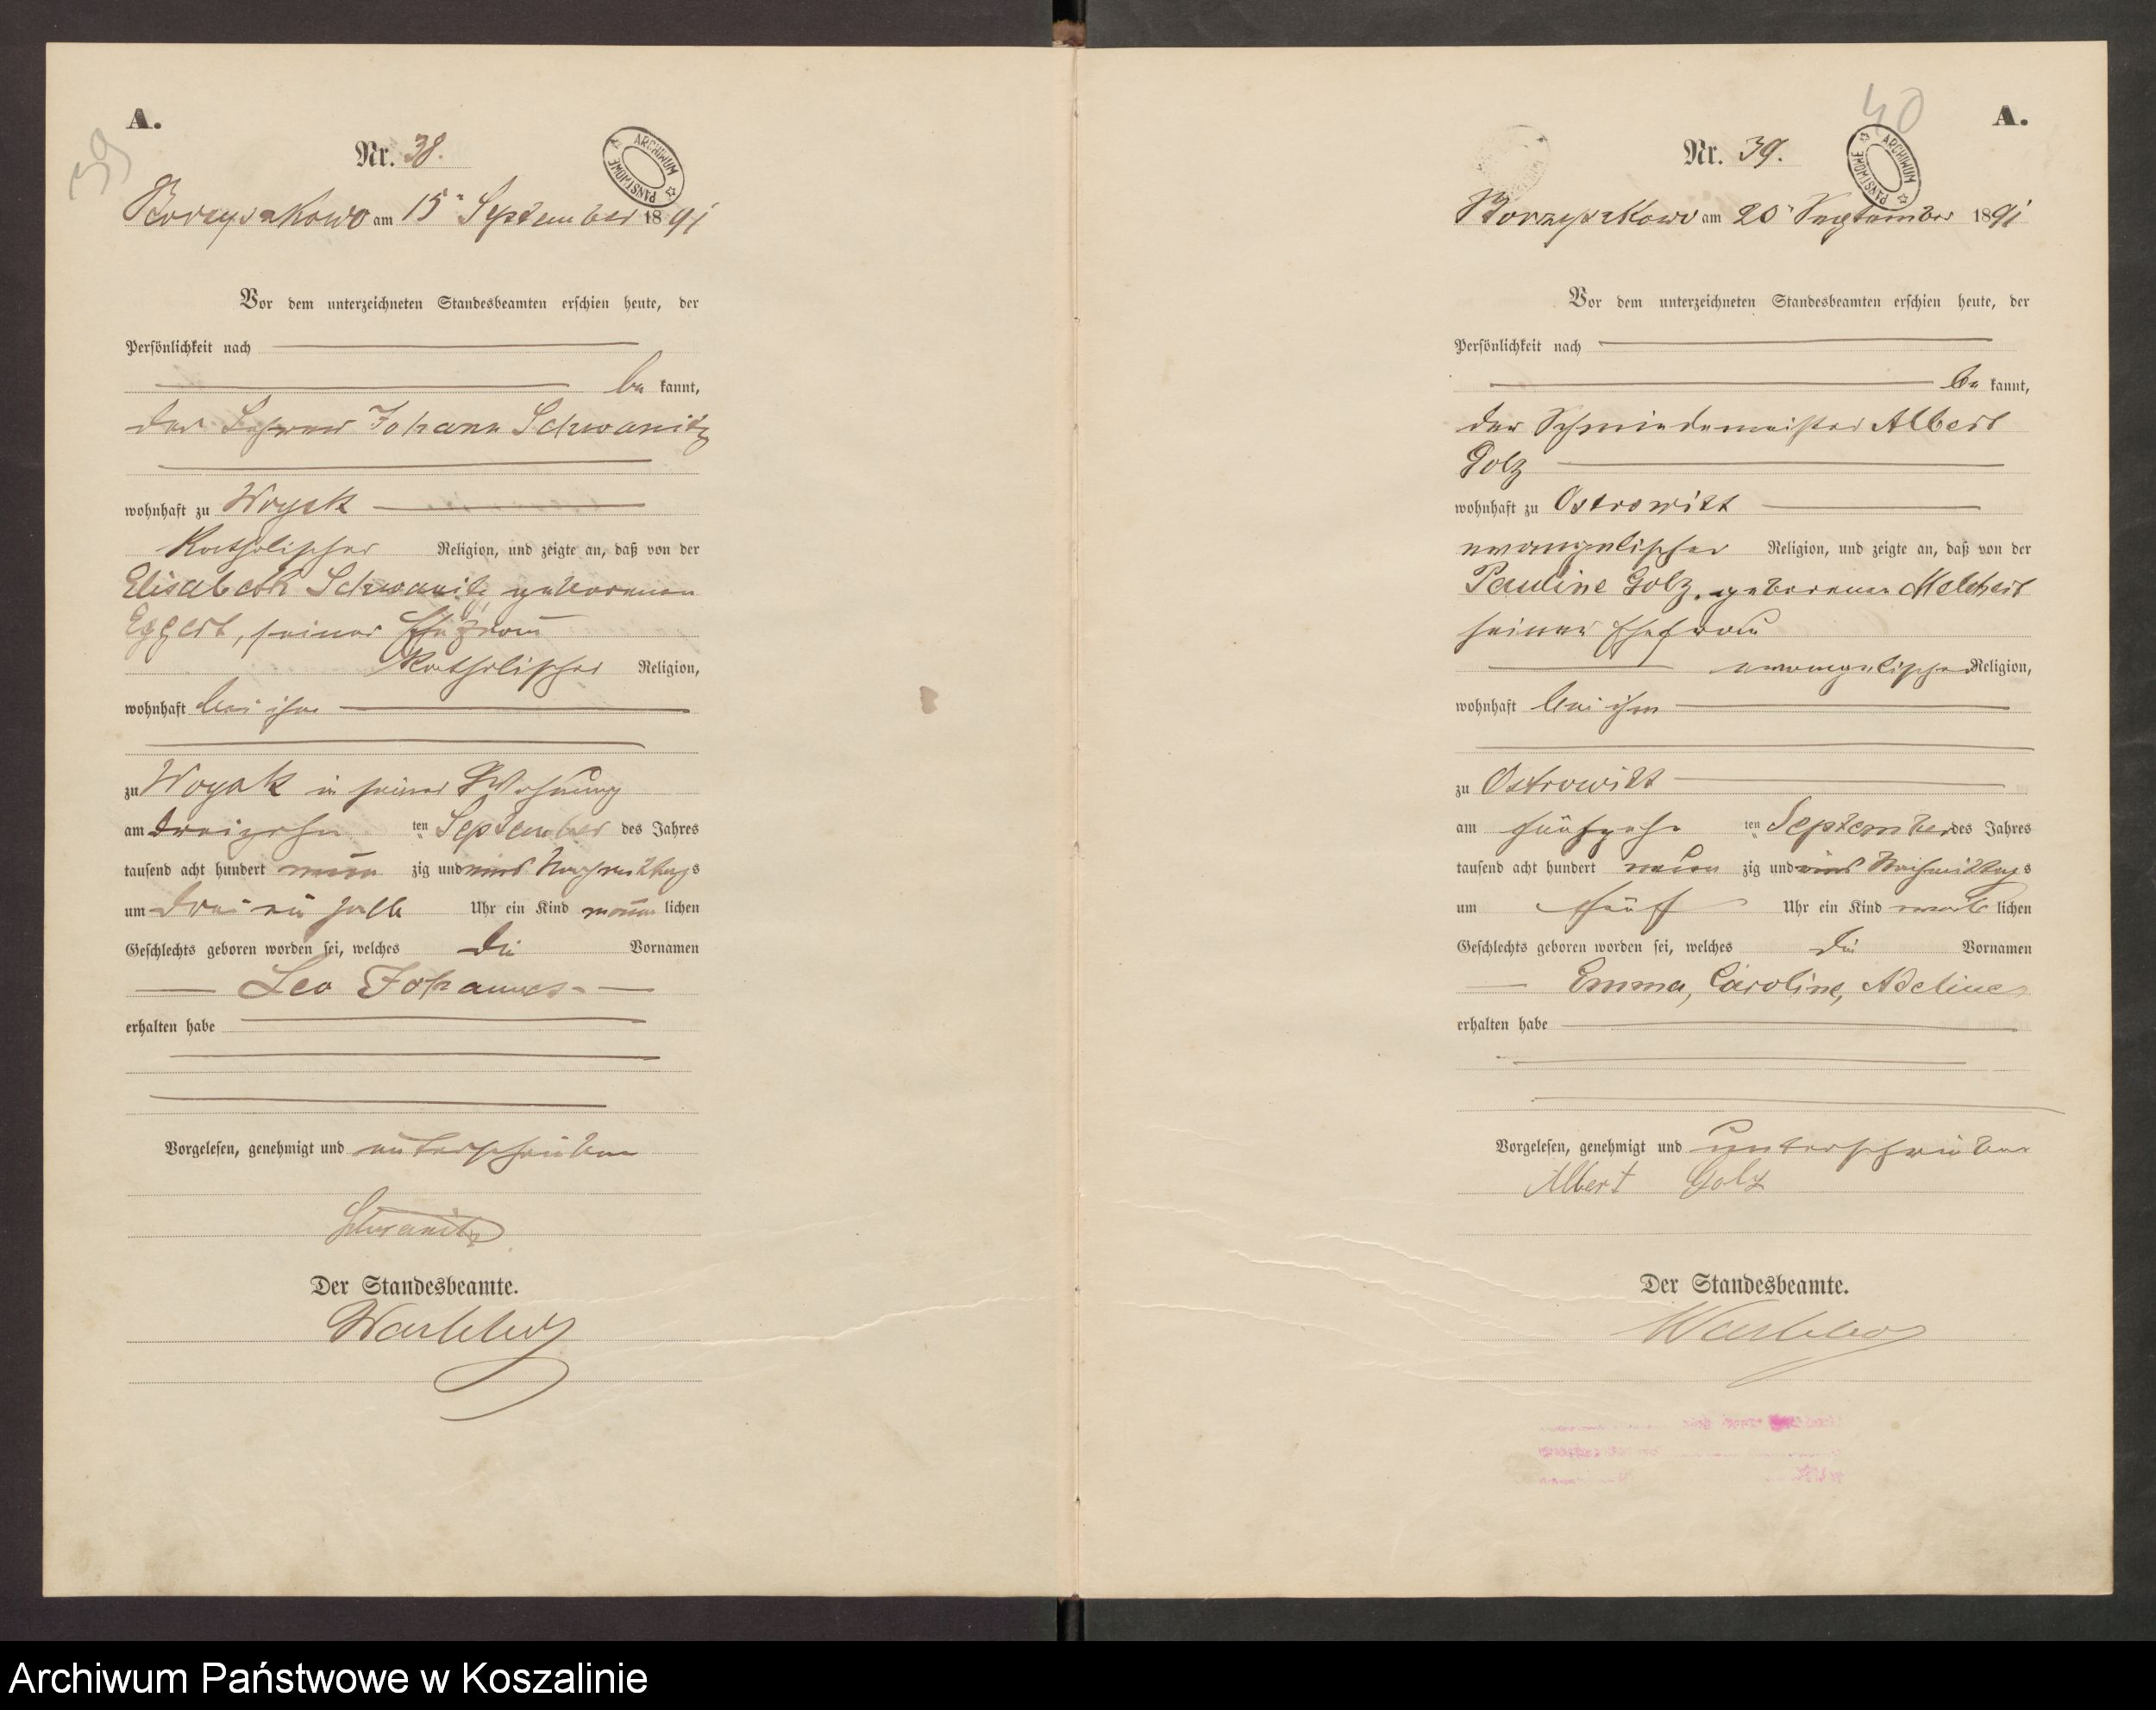 39
A.
Nr. 38.
ARCHIWUM PAŃSTWOWE
Borzyszkowo am 15 September 1891
Vor dem unterzeichneten Standesbeamten erschien heute, der
Persönlichkeit nach
be kannt,
der Lehrer Johann Schwanitz
wohnhaft zu Woysk
katholischer Religion, und zeigte an, daß von der
Elisabeth Schwanitz geborenen
Eggert, seiner Ehefrau
katholischer Religion,
wohnhaft bei ihm
zu Woysk in seiner Wohnung
am dreizehn ten September des Jahres
tausend acht hundert neun zig und eins Nachmittags
um drei ein halb Uhr ein Kind männ lichen
Geschlechts geboren worden sei, welches die Vornamen
Leo Johannes
erhalten habe
Vorgelesen, genehmigt und unterschrieben
Schwanitz
Der Standesbeamte.
40
A.
Nr. 39.
ARCHIWUM PAŃSTWOWE
Borzyszkowo am 20 September 1891
Vor dem unterzeichneten Standesbeamten erschien heute, der
Persönlichkeit nach
be kannt,
der Schmiedemeister Albert
Golz
wohnhaft zu Ostrowitt
evangelischer Religion, und zeigte an, daß von der
Pauline Golz, geborenen Melchert
seiner Ehefrau
evangelischer Religion,
wohnhaft bei ihm
zu Ostrowitt
am fünfzehn ten September des Jahres
tausend acht hundert neun zig und eins Nachmittags
um fünf Uhr ein Kind weib lichen
Geschlechts geboren worden sei, welches die Vornamen
Emma, Caroline, Adeline
erhalten habe
Vorgelesen, genehmigt und unterschrieben
Albert Golz
Der Standesbeamte.
Archiwum Państwowe w Koszalinie